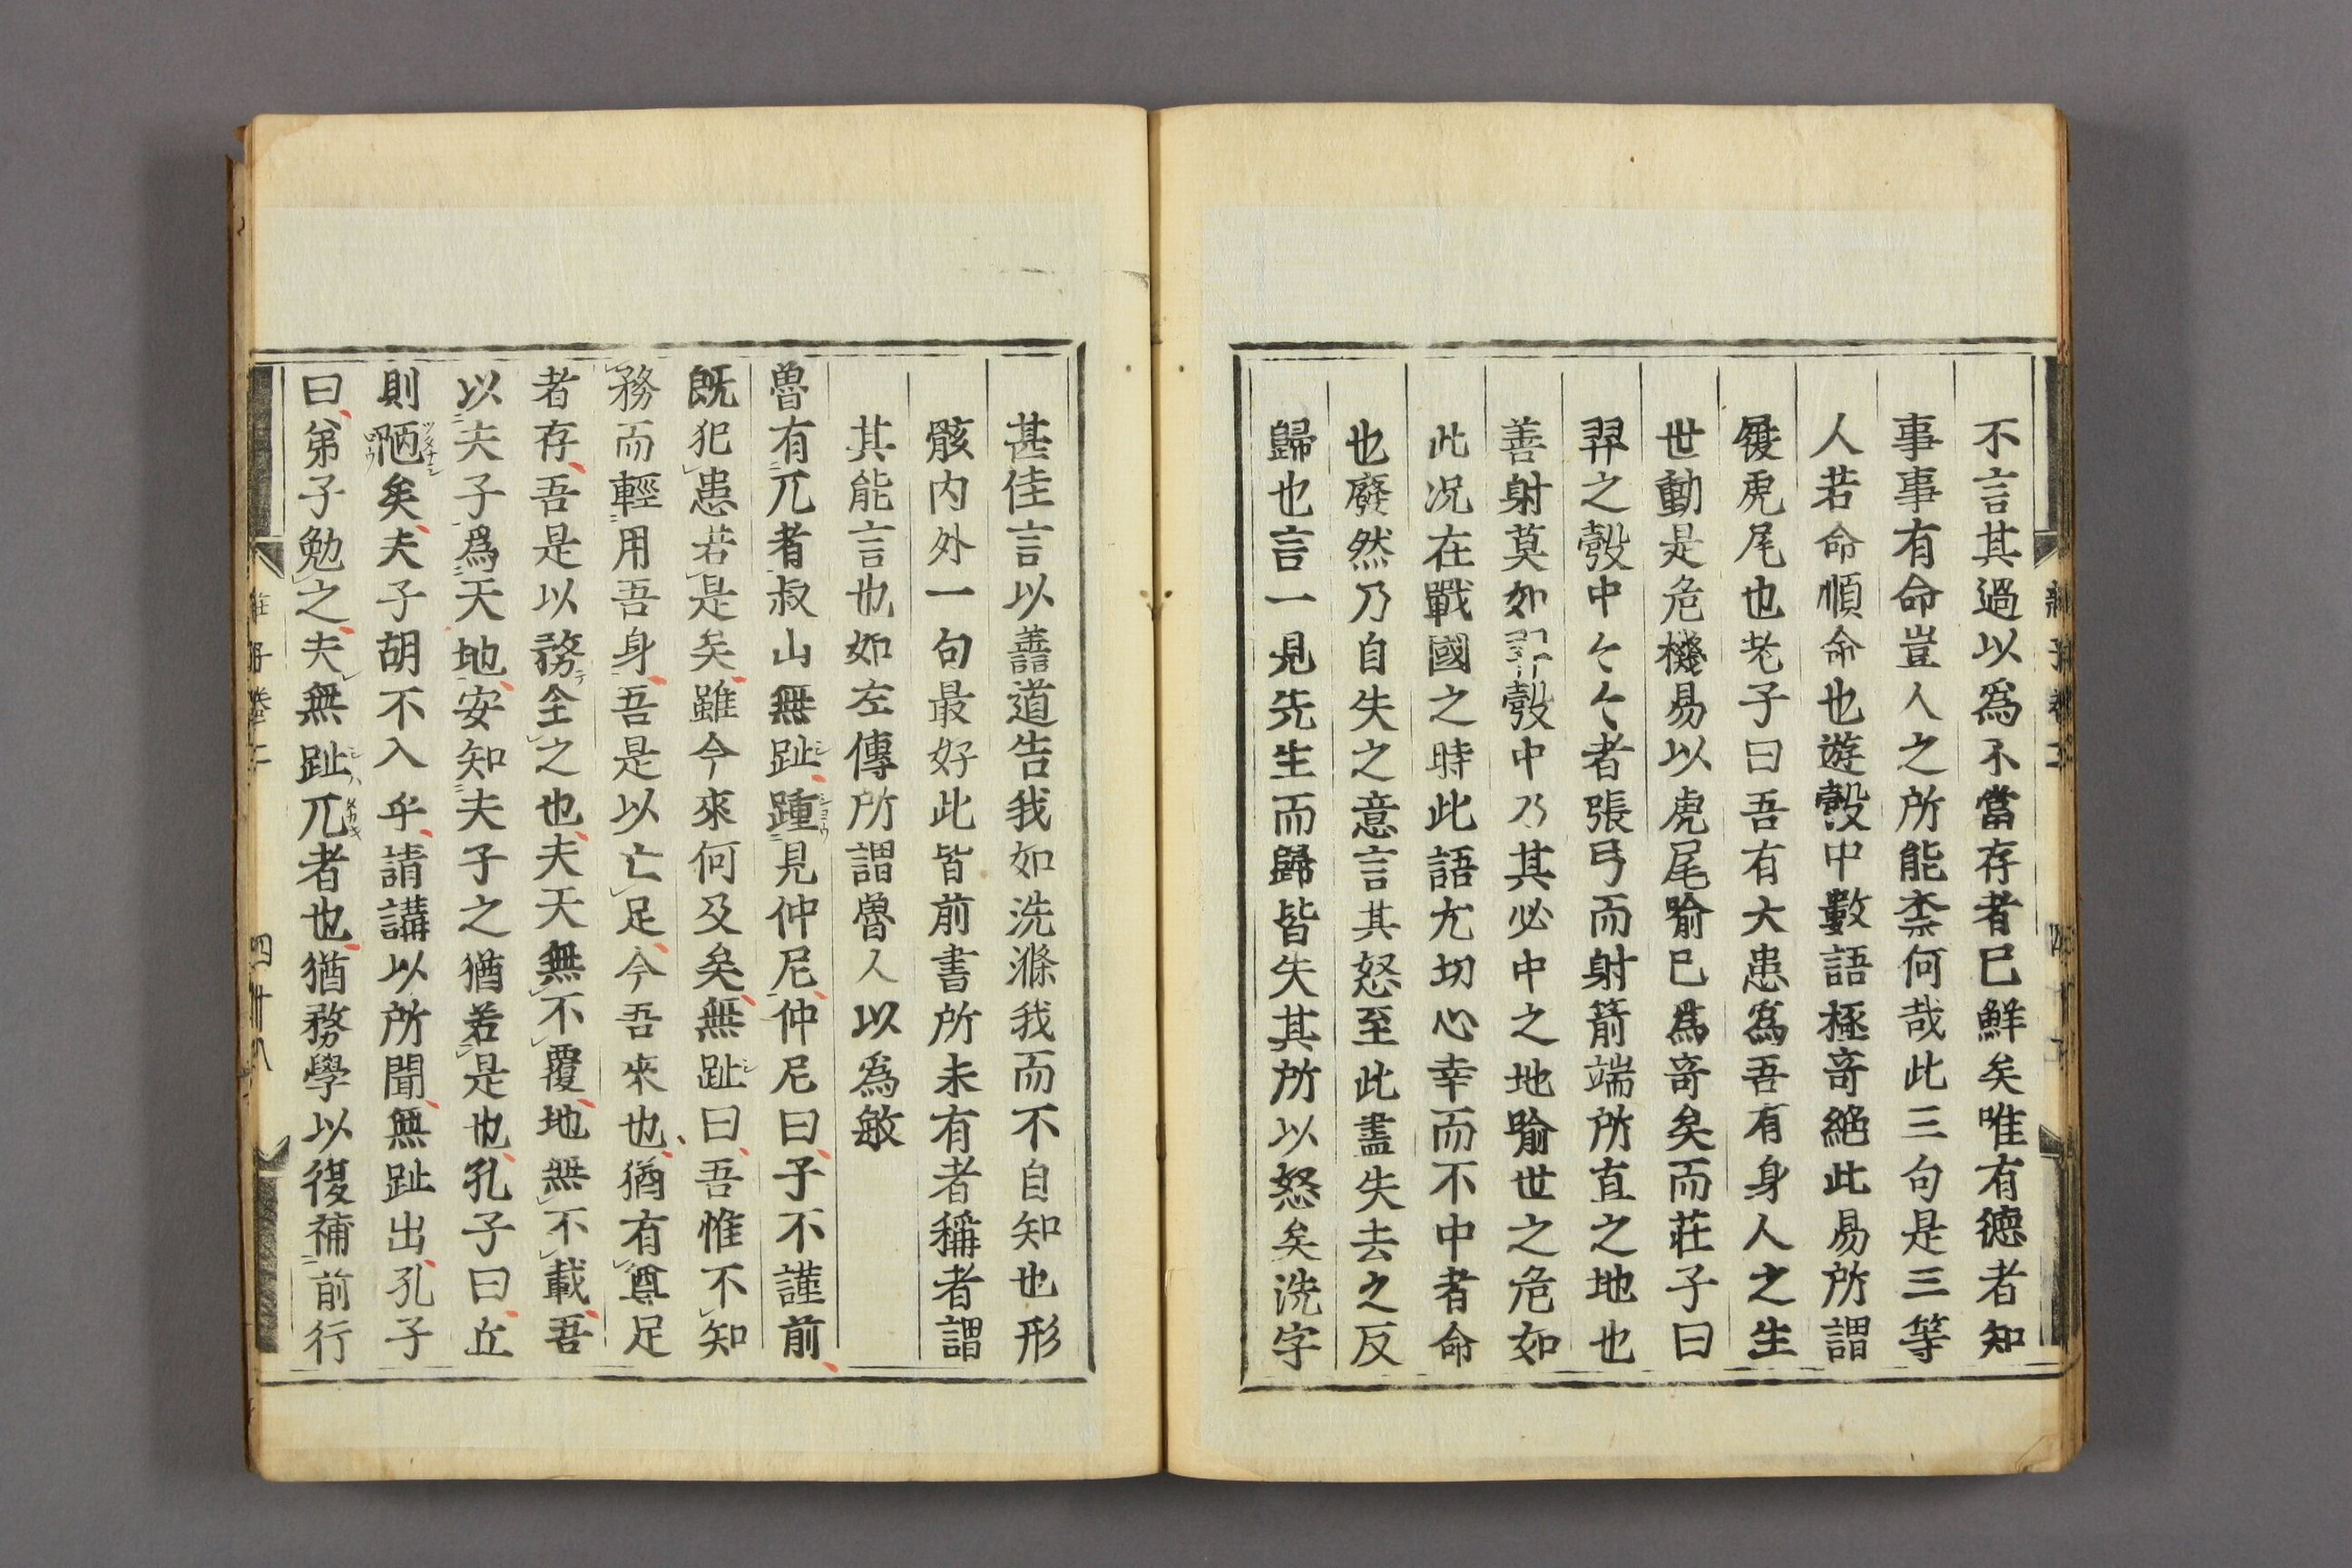 不言其過以爲不當存者已鮮矣唯有德者知
事事有命豈人之所能柰何哉此三句是三等
人若命順命也遊彀中數語極奇絕此易所謂
履虎尾也老子曰吾有大患爲吾有身人之生
世動是危機易以虎尾喻已爲奇矣而莊子曰
羿之彀中々々者張弓而射箭端所直之地也
善射莫如羿彀中乃其必中之地喻世之危如
此況在戰國之時此語尤切心幸而不中者命
也廢然乃自失之意言其怒至此盡失去之反
歸也言一見先生而歸皆失其所以怒矣洗字
甚佳言以善道告我如洗滌我而不自知也形
骸内外一句最好此皆前書所未有者稱者謂
其能言也如左傳所謂魯人以爲敏
魯有兀者叔山無趾踵見仲尼仲尼曰子不謹前
既犯患若是矣雖今來何及矣無趾曰吾惟不知
務而輕用吾身吾是以亡足今吾來也猶有尊足
者存吾是以務全之也夫天無不覆地無不載吾
以夫子爲天地安知夫子之猶若是也孔子曰丘
則陋矣夫子胡不入乎請講以所聞無趾出孔子
曰弟子勉之夫無趾兀者也猶務學以復補前行
莊子卷二 四十八